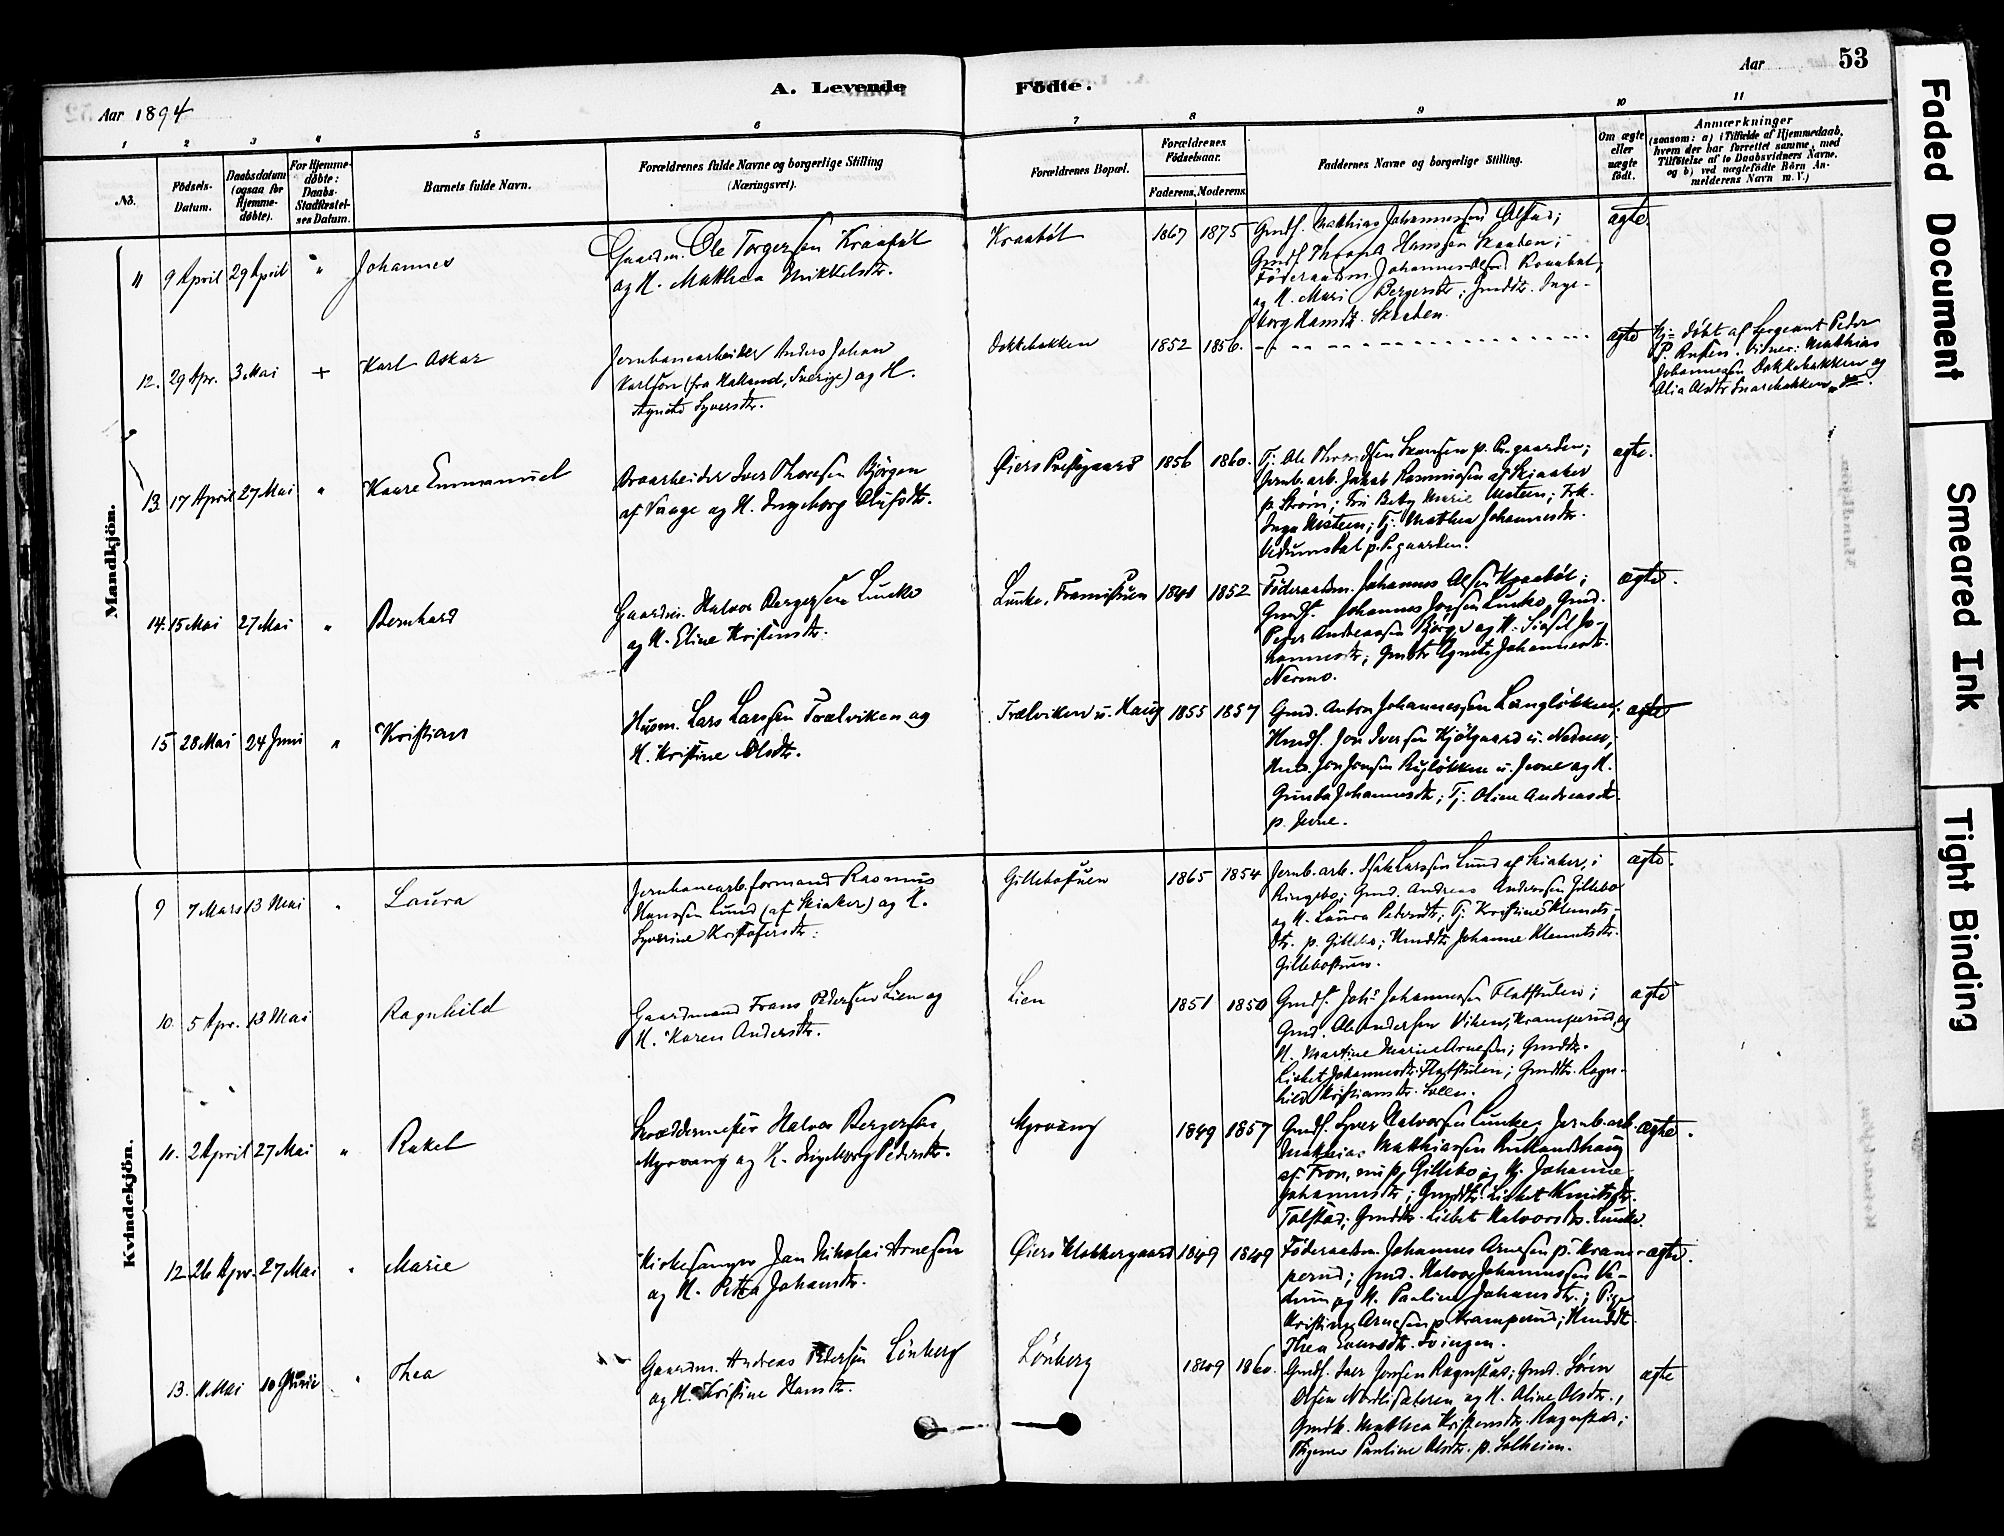 53
Aar 1894
A. Levende
Födte.
Aar
1 2 3 4 5 6 7 8 9 10 11
No.
Födsels-
Datum.
Daabsdatum
(ogsaa for
Hjemme-
döbte).
For Hjemme-
döbte:
Daabs-
Stadfæstel-
ses Datum.
Barnets fulde Navn.
Forældrenes fulde Navne og borgerlige Stilling
(Næringsvei).
Forældrenes Bopæl.
Forældrenes
Födselsaar.
Faderens. Moderens.
Faddernes Navne og borgerlige Stilling.
Om ægte
eller
uægte
födt.
Anmærkninger
(saasom: a) i Tilfælde af Hjemmedaab,
hvem der har forrettet samme, med
Tilföielse af to Daabsvidners Navne,
og b) ved uægtefödte Börn An-
melderens Navn m. V.)
Mandkjön.
11 9 April 29 April " Johannes
Gaardm. Ole Torgersen Kraaböl
og H. Mathea Mikkelsdtr.
Kraaböl 1867 1875
Grndf. Mathias Johannessen
Hanssen Skaaden;
Föderaadsm. Johannes Olsen Kraaböl,
og H. Mari Bergersdtr; Grddtr. Inge-
borg Hansdtr. Skaaden.
ægte
12. 29 Apr. 3 Mai + Karl Oskar
Jernbanearbeider Anders Johan
Karlson (fra Halland, Sverige) og H.
Agnethe Syversdtr.
Dokkebakken 1852 1856.
ægte
Hj=döbt af Sergeant Peder
P. Vidner: Mathias
Johannessen Dokkebakken og
Olia Olsdtr Snarebakken
13. 17 April 27 Mai " Kaare Emmanuel
Iver Thoresen Björgen
af Vaage og H. Ingeborg Olufsdtr.
Öiers Prestegaard 1856 1860.
Tj. Ole p. Pr.gaarden;
Jernb. arb. Jakob Rasmussen af Skiaaker
p. Ström; Fru Betzy Marie Mstern; Frk.
Inga Tj. Mathea Johannesdtr.
Vedumsdal p. Pr.gaarden.
ægte.
14. 15 Mai 27 Mai " Bernhard
Gaardm. Halvor Bergersen Lunke
og H. Eline Kristensdtr.
Lunke, 1840 1852
Föderaadsm. Johannes Olsen Kraaböl;
Grndf. Johannes Lunke, Grnd.
Peder Andreassen Björge og H. Sissel Jo-
hannesdtr; Agnete Johannesdtr.
Nermo.
ægte.
15 28 Mai 24 Juni " Kristian
Husm. Lars Larssen Trælviken og
H. Kristine Olsdtr.
Trælviken u. Haug 1855 1857
Grnd. Anton Johannessen Langlökken;
Hmdf. Jon Iversen Kjölgaard u.
Jon Jonsen Ryglökken u. Jevne og H.
Gunda Johannesdtr; Tj. Oline Andreasdtr
p. Jevne.
ægte
Kvindekjön.
9 7 Mars 13 Mai " Laura
Jernbanearb.formand Rasmus
Hanssen Lund (af Skiaker) og H.
Syverine Kristofersdtr.
Gillebostuen 1865 1854
Jernb. arb. Larssen Lund af Skiaker, i
Ringebo; Grnd. Andreas Anderssen Gillebo
og H. Laura Pedersdtr; Tj. Kristine Klemets-
dtr. p. Gillebo; Hmddtr Johanne Klemetsdtr.
Gillebostuen.
ægte.
10. 5 Apr. 13 Mai Ragnhild
Gaardmand Frans Pedersen Lien og
H. Karen Andersdtr.
Lien 1851 1850
Grndf. Johs Johannessen Flatskulen;
Grnd. Ole Andersen Viken, Kramperud, og
H. Martine Marie Arnesen; Grnddtr.
Lisbet Johannesdtr. Flatskulen; Grnddtr. Ragn-
hild Kristiansdtr.
ægte
11. 2 April 27 Mai " Rakel
Skræddermester Halvor Bergersen
Myrvang og H. Ingeborg Pedersdtr.
Myrvang 1849 1857
Grndf. Syver Halvorsen Lunke; Jernb.arb
Mathias Matthiassen Ruklandshaug
af Fron, nu p. Gillebo og Hj. Johanne
Johannesdtr; Grnddtr. Lisbet Knutsdtr.
Tolstad; Grnddtr. Lisbet Halvorsdtr. Lunke.
ægte.
12 26 Apr. 27 Mai " Marie
Kirkesanger Jan Nikolai Arnesen
og H. Petra Johansdtr.
Öiers Klokkergaard 1849 1849
Föderaadsm. Johannes Arnesen p. Kram-
perud; Grnd. Halvor Johannessen Ve-
dum og H. Pauline Johansdtr.; Pige
Kristine Arnesen p. Kramperud; Hmddtr
Thea Evensdtr. Svingen.
ægte.
13. 11. Mai 10 Juni " Thea
Gaardm. Andreas Pedersen Lönberg
og H. Kristine Hansdtr.
Lönberg 1849 1860.
Grndf. Iver Jonsen Ragnstad; Grnd. Sören
Olsen Nordlisæteren og H. Oline Olsdtr.,
Grndk. Mathea Kristensdtr. Ragnstad;
Pigerne Pauline Olsdtr. p. Solheim.
ægte
Faded Document
Smeared Ink
Tight Binding